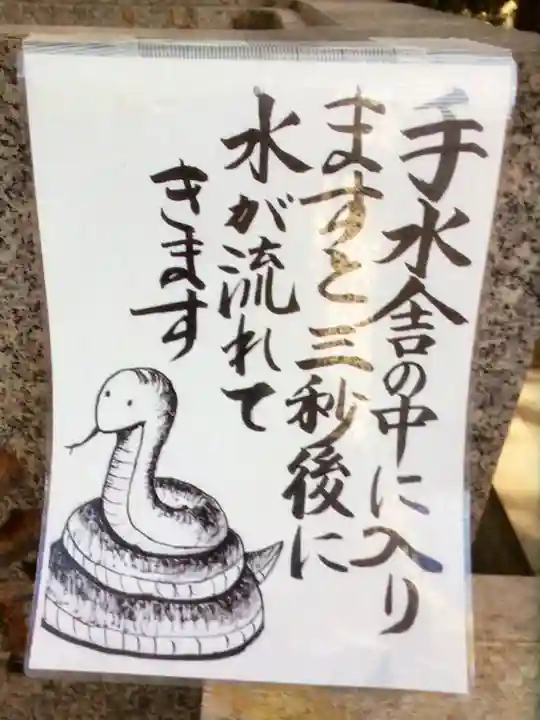 手水舎の中に入り
ますと三秒後に
水が流れて
きます